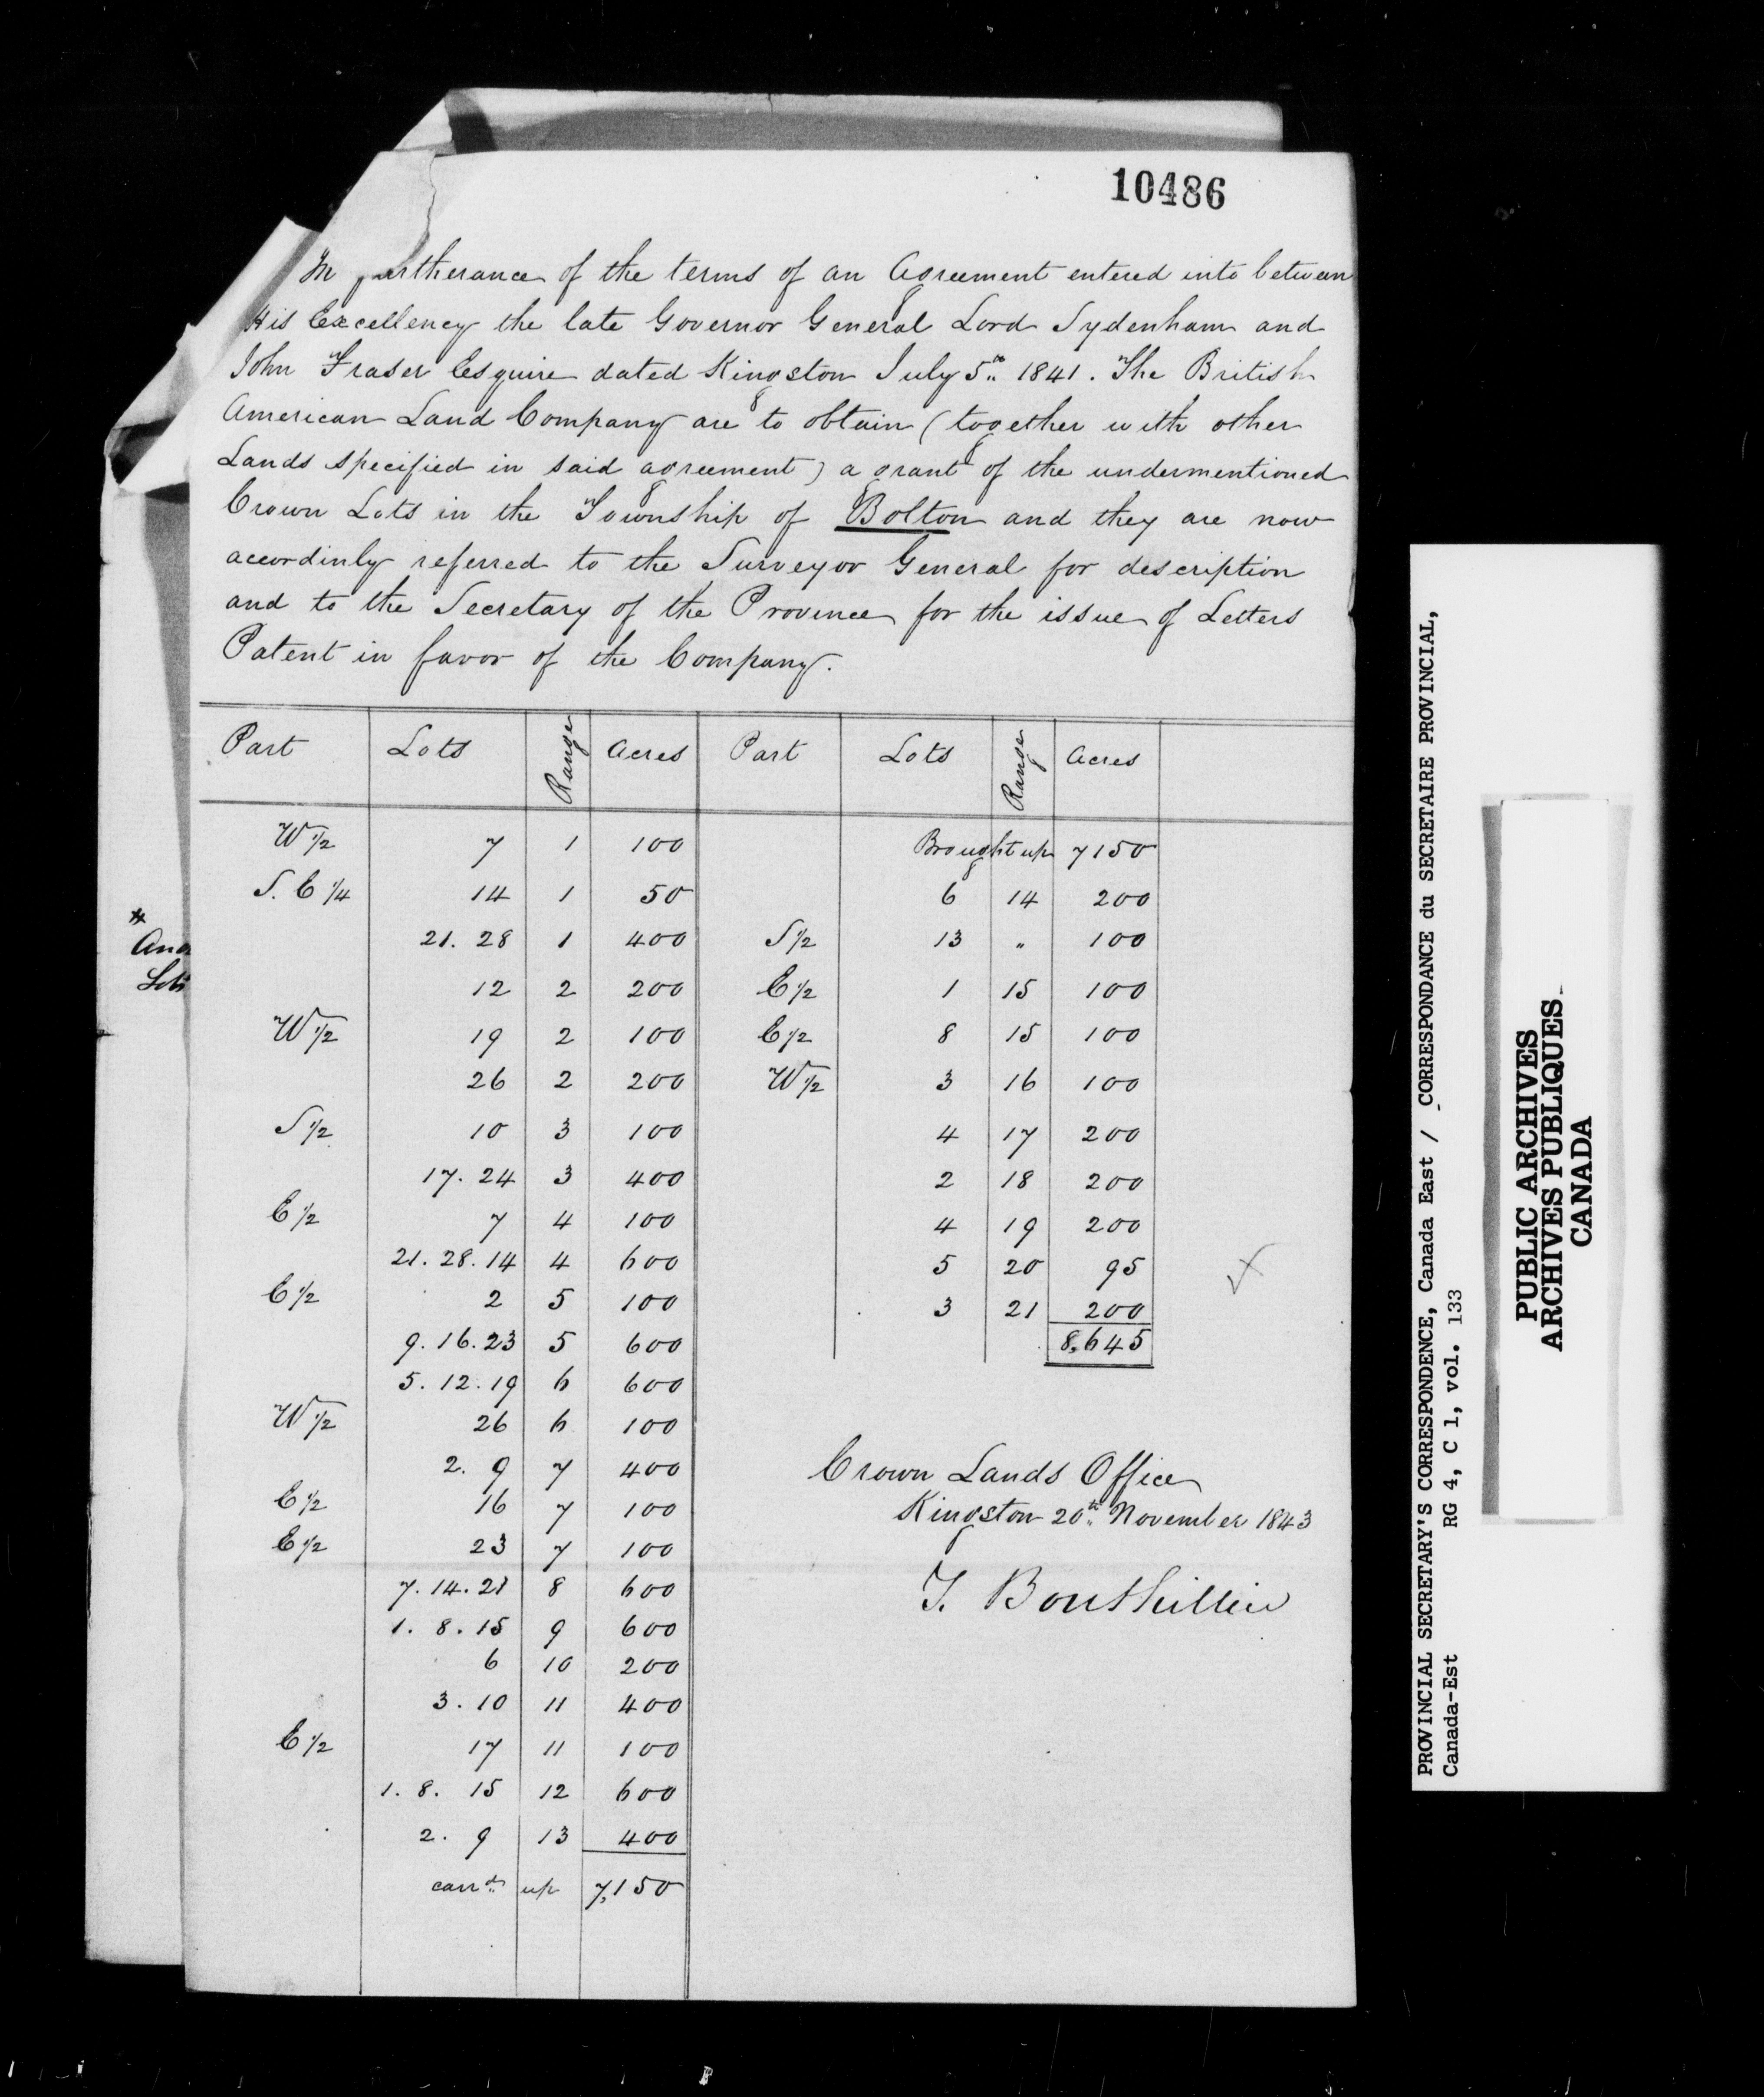 10486
In furtherance of the terms of an Agreement entered into between
His Excellency the late Governor General Lord Sydenham and
John Fraser Esquire dated Kingston July 5th 1841. The British
American Land Company are to obtain (together with other
Lands specified in said agreement) a grant of the undermentioned
Crown Lots in the Township of Bolton and they are now
accordinly referred to the Surveyor General for description
and to the Secretary of the Province for the issue of Letters
Patent in favor of the Company.
Part Lots Range Acres Part Lots Range Acres
W 1/2 7 1 100 Brought up 7150
S. E 1/4 14 1 50 6 14 200
21. 28 1 400 S 1/2 13 " 100
12 2 200 E 1/2 1 15 100
W 1/2 19 2 100 E 1/2 8 15 100
26 2 200 W 1/2 3 16 100
S 1/2 10 3 100 4 17 200
17. 24 3 400 2 18 200
E 1/2 7 4 100 4 19 200
21. 28. 14 4 600 5 20 95
E 1/2 2 5 100 3 21 200
9. 16. 23 5 600 8,645
5. 12. 19 6 600
W 1/2 26 6 100
2. 9 7 400
E 1/2 16 7 100
E 1/2 23 7 100
7. 14. 21 8 600
1. 8. 15 9 600
6 10 200
3. 10 11 400
E 1/2 17 11 100
1. 8. 15 12 600
2. 9 13 400
carrd up 7,150
Crown Lands Office
Kingston 20th November 1843
T. Bouthillier
PROVINCIAL SECRETARY'S CORRESPONDENCE, Canada East / CORRESPONDANCE du SECRETAIRE PROVINCIAL,
Canada-Est RG 4, C 1, vol. 133
PUBLIC ARCHIVES
ARCHIVES PUBLIQUES
CANADA